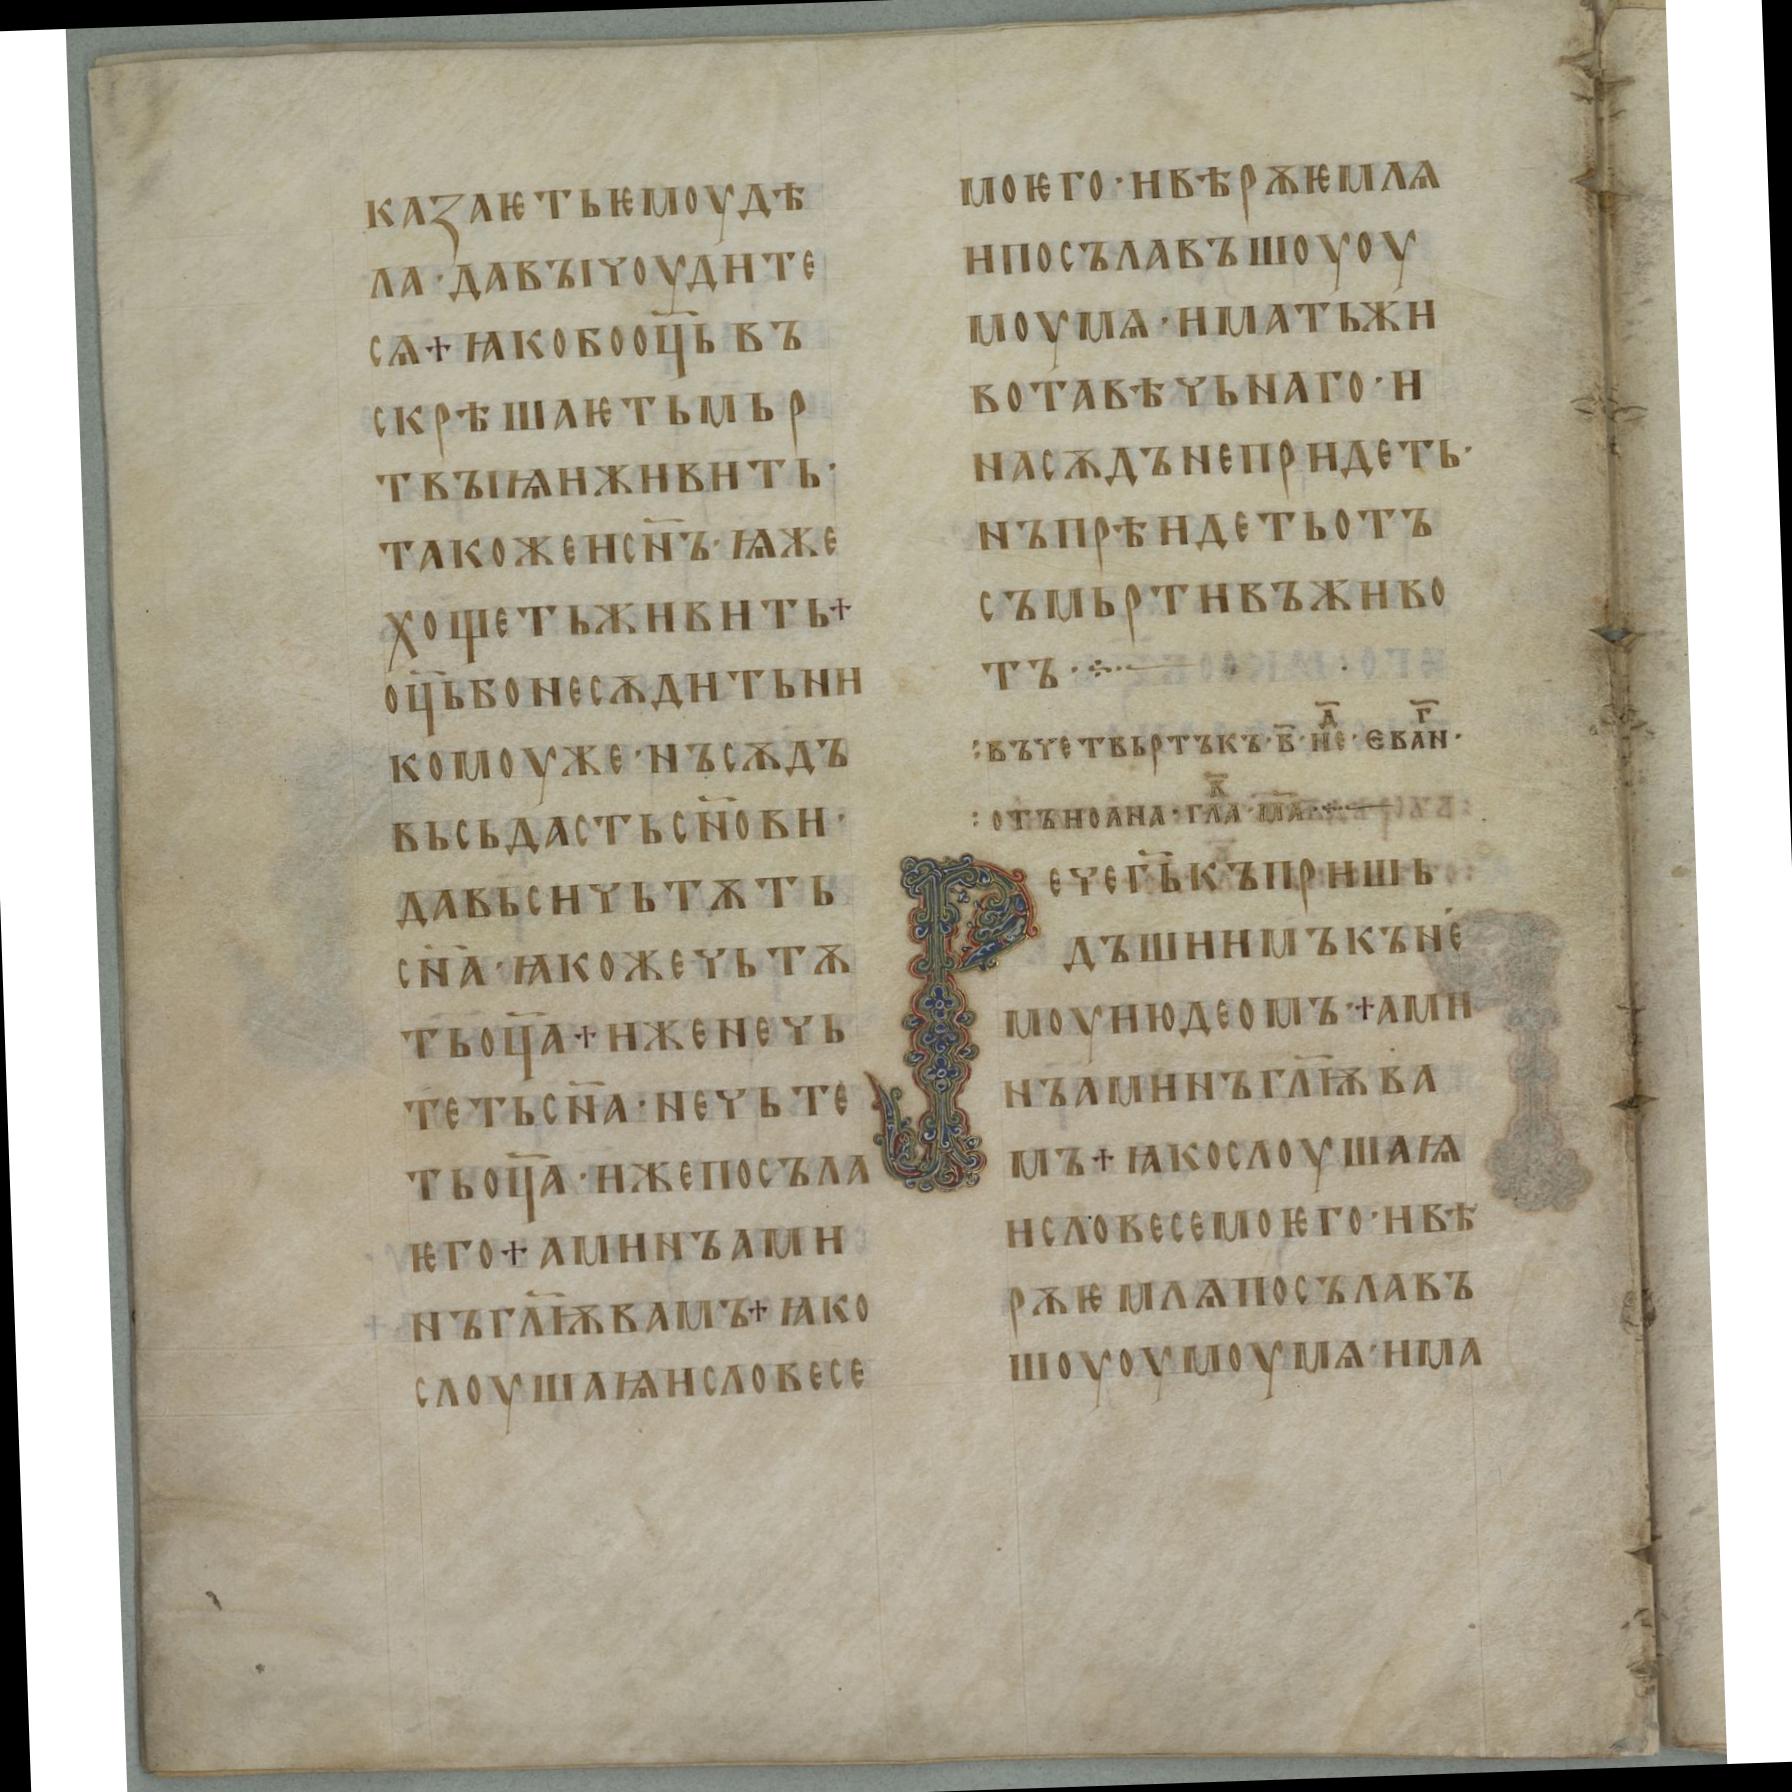 каꙁаѥтьѥмоудѣ
ла·давъıчоудите
сѧ+ꙗкобооц҃ьвъ
скрѣшаѥтьмьр
твъıѩиживить·
такожеисн҃ъ·ѩже
хощетьживить+
оц҃ьбонесѫдитьни
комоуже·нъсѫдъ
вьсьдастьсн҃ови·
давьсичьтѫть
сн҃а·ꙗкожечьтѫ
тьоц҃а+иженечь
тетьсн҃а·нечьте
тьоц҃а·ижепосъла
ѥго+аминъами
нъгл҃ѭвамъ+ꙗко
слоушаѩисловесе
моѥго·ивѣрѫѥмлѧ
ипосълавъшоуоу
моумѧ·иматьжи
вотавѣчьнаго·и
насѫдънепридеть·
нъпрѣидетьотъ
съмьртивъживо
тъ·
:въчетвьртъкъ·в҃·не·д҃·еван·г҃·
:отъиоана·гла·к҃·ма·
Речегь҃къпришь
дъшиимъкъне
моуиюдеомъ·+ами
нъаминъгл҃ѭва
мъ+ꙗкослоушаѩ
исловесемоѥго·ивѣ
рѫѥмлѧпосълавъ
шоуоумоумѧ·има